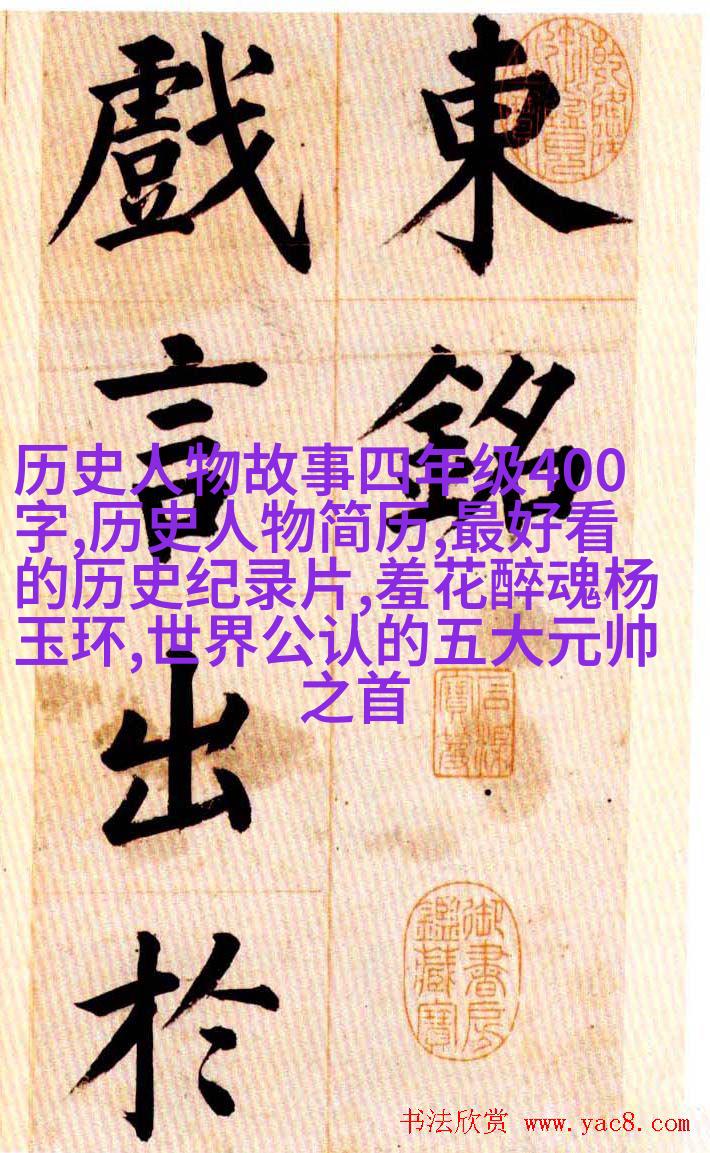 東銘
戲言出於
历史人物故事四年级400
字,历史人物简历,最好看
的历史纪录片,羞花醉魂杨
玉环,世界公认的五大元帅
之首
御書房
鑑藏寶
书法欣赏 www.yac8.com